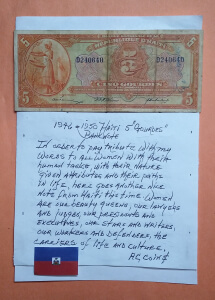 5
D240640
D240640
1946 + 1950 HAITI 5 GOURDES
BANKNOTE
IN ORDER TO PAY TRIBUTE WITH MY
WORDS TO ALL WOMEN WITH THEIR
HUMAN TOUCH, WITH THEIR NATURE
GIVEN ATTRIBUTES AND THEIR PATHS
IN LIFE, HERE GOES ANOTHER NICE
NOTE FROM HAITI THIS TIME WOMEN
ARE OUR BEAUTY QUEENS, OUR LAWYERS
AND JUDGES, OUR PRESIDENTS AND
EXECUTIVES, OUR STARS AND WRITERS,
OUR WORKERS AND DEFENDERS, THE
CARRIERS OF LIFE AND CULTURE.
COINS